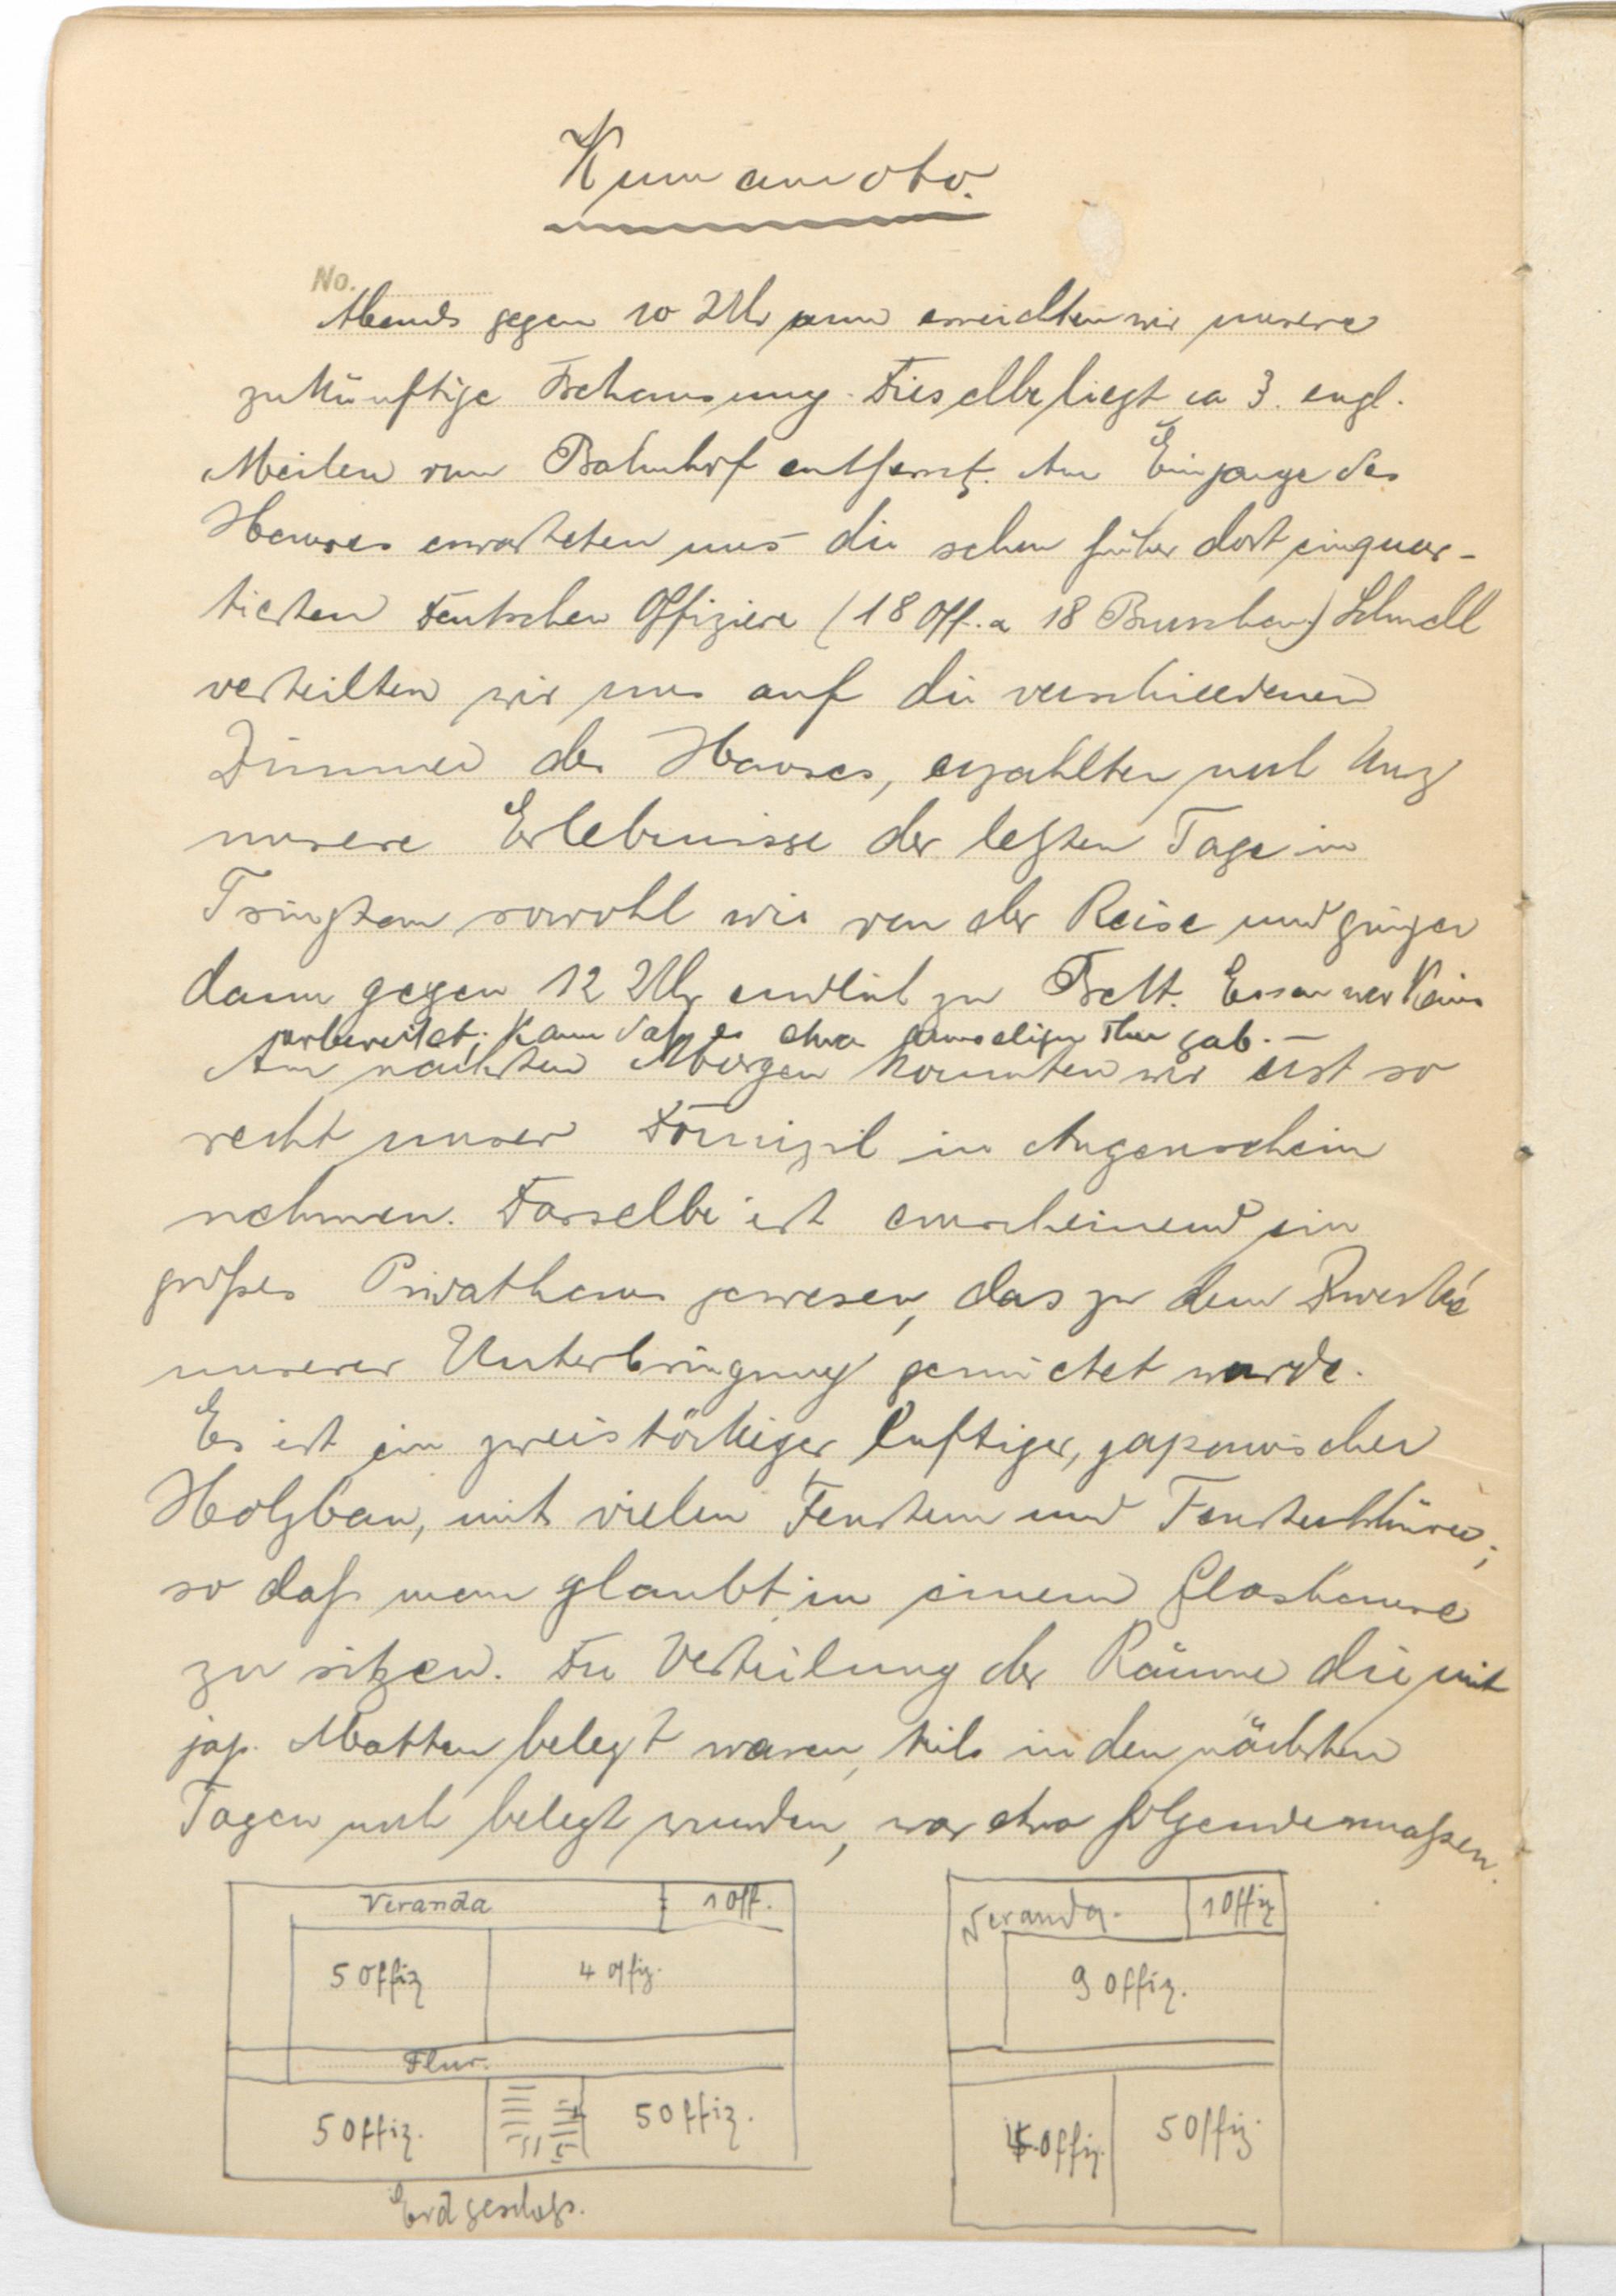 Kumamoto.
No.
Abends gegen 10 Uhr erreichten wir unsere
zukünftige Behausung. Dieselbe liegt ca 3. engl.
Meilen vom Bahnhof entfernt. Am Eingange des
Hauses erwarteten uns die schon früher dort einquar-
tierten Deutschen Offiziere (18 Off. u 18 Burschen) Schnell
verteilten wir uns auf die verschiedenen
Zimmer des Hauses, erzählten noch kurz
unsere Erlebnisse der letzten Tage in
Tsingtau sowohl wie von der Reise und gingen
dann gegen 12 Uhr endlich zu Bett. Essen war keins
vorbereitet; kaum daß es etwas Thee gab. –
Am nächsten Morgen konnten wir erst so
recht unser Domizil in Augenschein
nehmen. Dasselbe ist anscheinend ein
großes Privathaus gewesen, das zu dem Zwecke
unserer Unterbringung gemietet wurde.
Es ist ein zweistöckiger luftiger, japanischer
Holzbau, mit vielen Fenstern und Fensterthüren;
so daß man glaubt in einem Glashause
zu sitzen. Die Verteilung der Räume die mit
jap. Matten belegt waren, teils in den nächsten
Tagen noch belegt wurden, war etwa folgendermaßen.
Veranda
1 Off.
5 Offiz
4 Offiz.
Flur.
5 Offiz.
5 Offiz.
Erdgeschoß.
Veranda.
1 Offiz
9 Offiz.
Offiz.
5 Offiz.